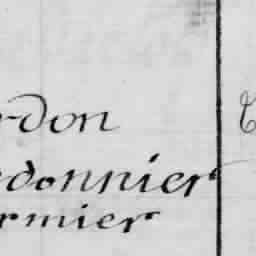 rdon
donnier
rmier